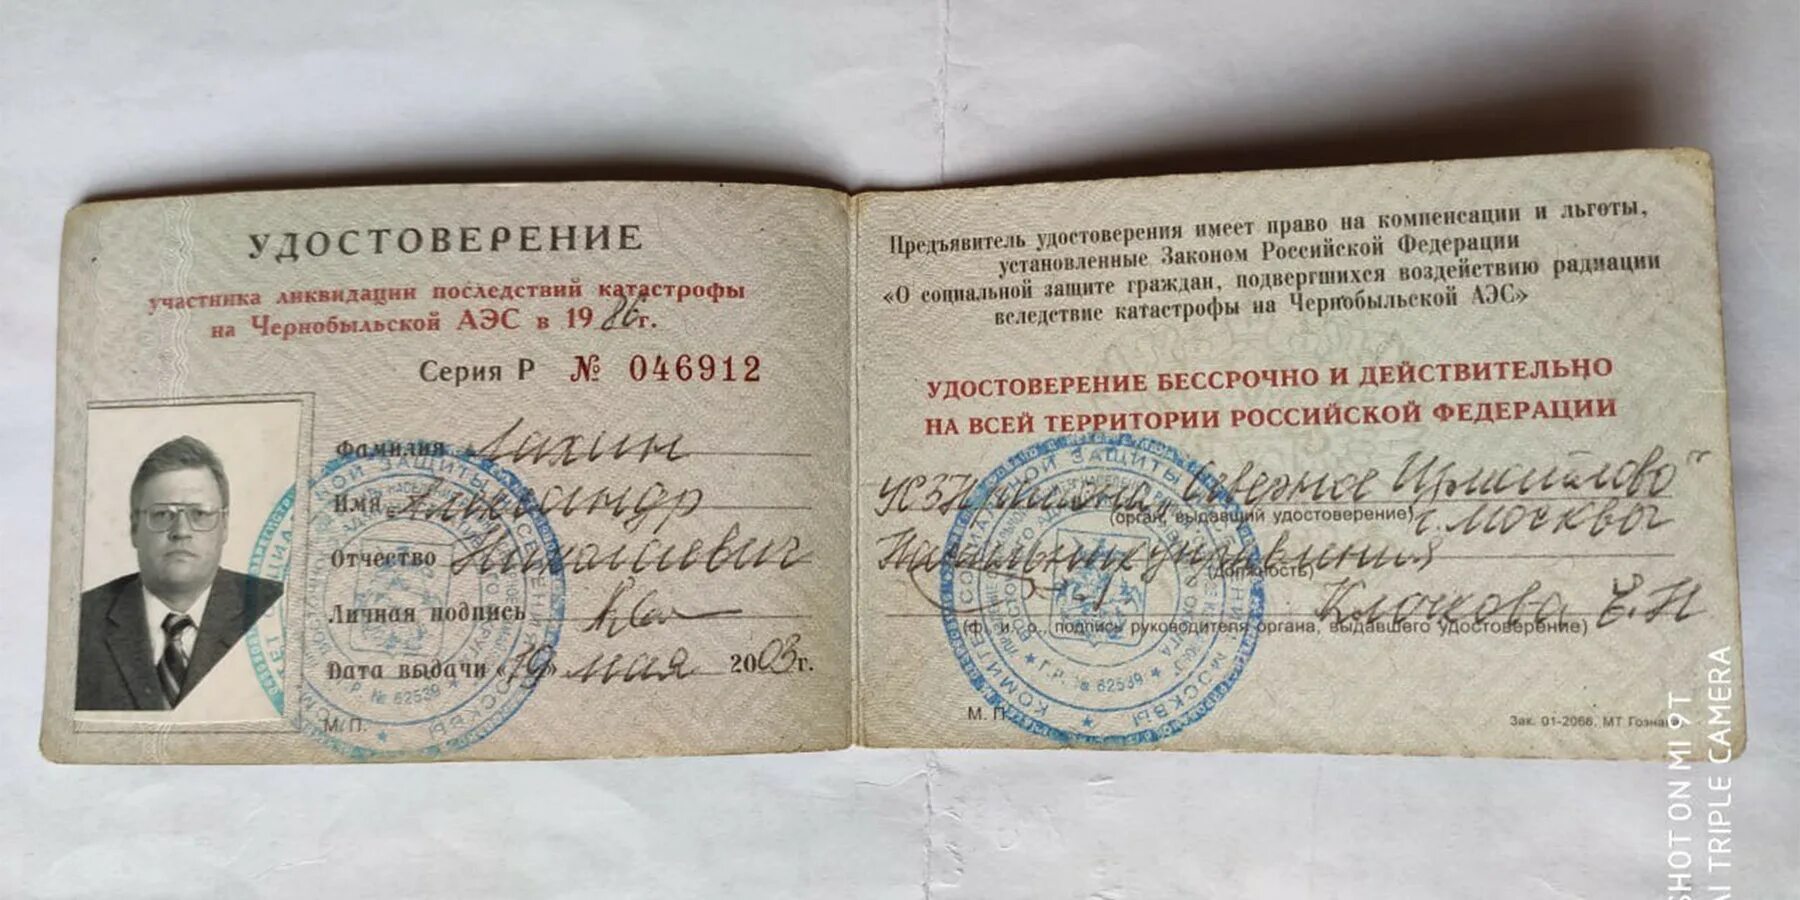 УДОСТОВЕРЕНИЕ
участника ликвидации последствий катастрофы
на Чернобыльской АЭС в 1986г.
Серия Р № 046912
Фамилия Лахин
Имя Александр
Отчество Николаевич
Личная подпись
Дата выдачи «19» мая 2003г.
М.П.
Предъявитель удостоверения имеет право на компенсации и льготы,
установленные Законом Российской Федерации
«О социальной защите граждан, подвергшихся воздействию радиации
вследствие катастрофы на Чернобыльской АЭС»
УДОСТОВЕРЕНИЕ БЕССРОЧНО И ДЕЙСТВИТЕЛЬНО
НА ВСЕЙ ТЕРРИТОРИИ РОССИЙСКОЙ ФЕДЕРАЦИИ
УСЗН района „Северное Измайлово"
(орган, выдавший удостоверение)
г. Москвы
Начальник управления
(должность)
Клокова Е.Н
(ф. и. о., подпись руководителя органа, выдавшего удостоверение)
М. П.
Зак. 01-2066. МТ Гознак
SHOT ON MI 9T
AI TRIPLE CAMERA